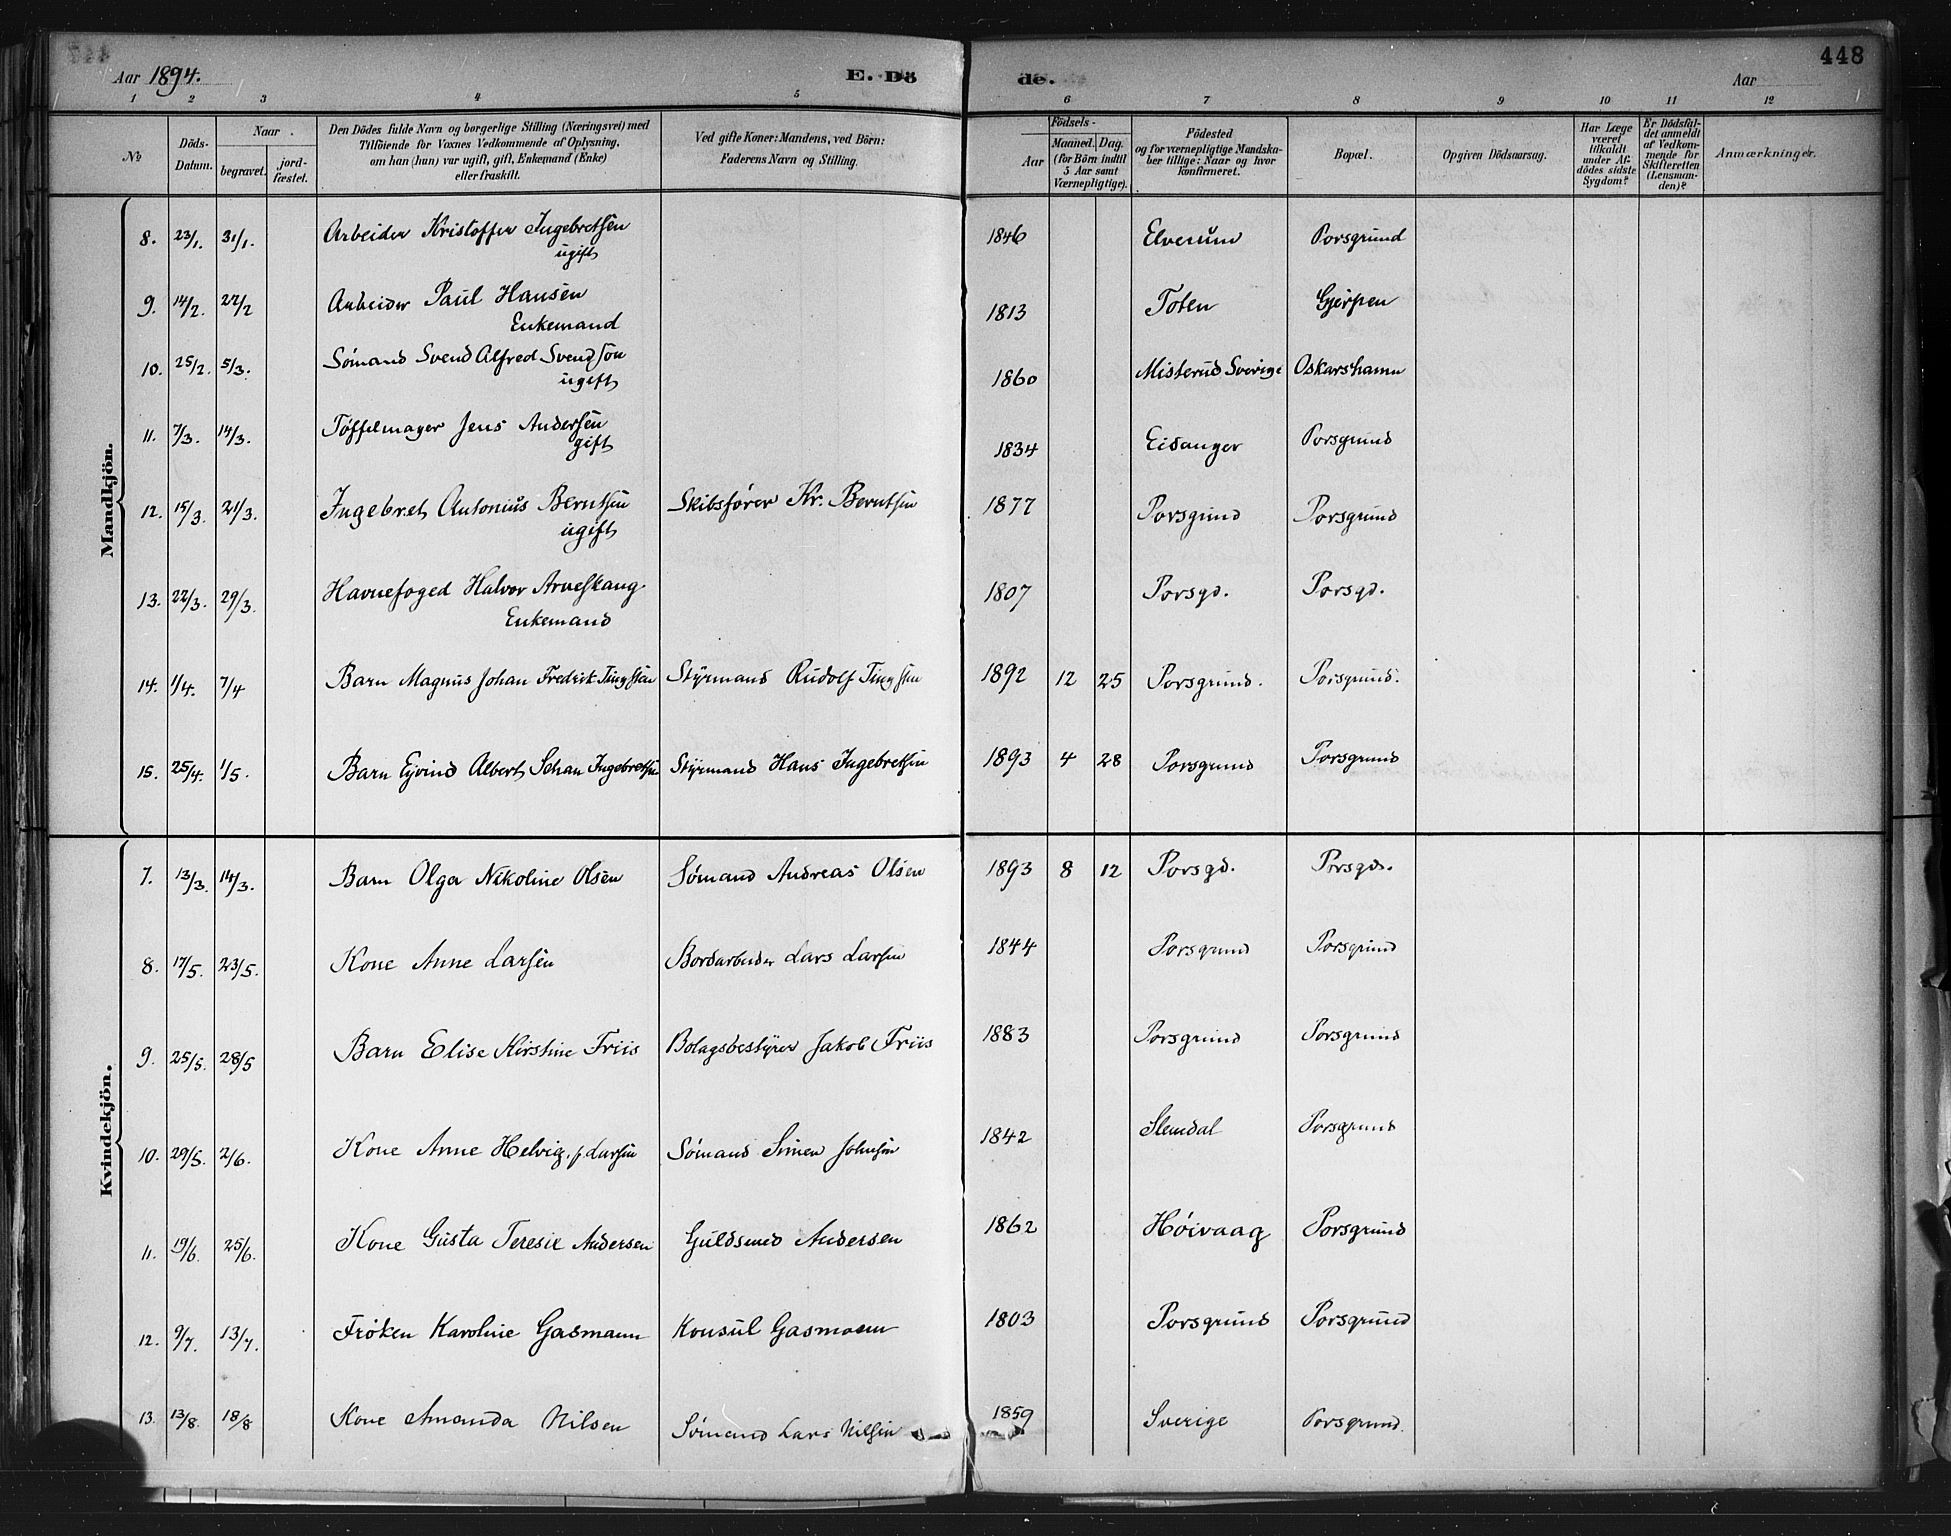 448
Aar 1894. E. Dö de. Aar
1 2 3 4 5 6 7 8 9 10 11 12
No
Döds-Datum.
Naar
begravet.
jord-fæstet.
Den Dödes fulde Navn og borgerlige Stilling (Næringsvei) med
Tilföiende for Voxnes Vedkommende af Oplysning,
om han (hun) var ugift, gift, Enkemand (Enke)
eller fraskilt.
Ved gifte Koner: Mandens, ved Börn:
Faderens Navn og Stilling.
Födsels-
Aar
Maaned. Dag.
(for Börn indtil
5 Aar samt
Værnepligtige).
Födested
og for værnepligtige Mandska-
ber tillige: Naar og hvor
konfirmeret.
Bopæl.
Opgiven Dödsaarsag.
Har Læge
været
tilkaldt
under Af-
dödes sidste
Sygdom?
Er Dödsfal-
det anmeldt
af Vedkom-
mende for
Skifteretten
(Lensman-
den)?
Anmærkninger.
Mandkjön.
8. 23/1. 31/1. Arbeider Kristoffer Ingebretsen 1846 Elverum Porsgrund
ugift
9. 14/2. 22/2 Arbeider Paul Hansen 1813 Toten Gjerpen
Enkemand
10. 25/2. 5/3. Sømand Svend Alfred Svendson 1860 Misterud Sverige Oskarshamn
ugift
11. 7/3. 14/3. Tøffelmager Jens Andersen 1834 Eidanger Porsgrund
gift
12. 15/3. 21/3. Ingebret Antonius Berntsen Skibsfører Kr. Berntsen 1877 Porsgrund Porsgrund
ugift
13. 22/3. 29/3. Havnefoged Halvor Arveskaug 1807 Porsgd. Porsgd.
Enkemand
14. 1/4. 7/4 Barn Magnus Johan Fredrik Styrmand Rudolf 1892 12 25 Porsgrund. Porsgrund.
15. 25/4. 1/5. Barn Ejvind Albert Johan Ingebretsen Styrmand Hans Ingebretsen 1893 4 28 Porsgrund Porsgrund
Kvindekjön.
7. 13/3. 14/3. Barn Olga Nikoline Olsen Sømand Andreas Olsen 1893 8 12 Porsgd. Porsgd.
8. 17/5. 23/5. Kone Anne Larsen Bordarbeider Lars Larsen 1844 Porsgrund Porsgrund
9. 25/5. 28/5 Barn Elise Kirstine Friis Bolagsbestyrer Jakob Friis 1883 Porsgrund Porsgrund
10. 29/5. 2/6. Kone Anne Helvig f. Larsen Sømand Simen Johnsen 1842 Slemdal Porsgrund
11. 19/6. 25/6. Kone Gusta Teresie Andersen Guldsmed Andersen 1862 Høivaag Porsgrund
12. 9/7. 13/7. Frøken Karoline Gasmann Konsul Gasmann 1803 Porsgrund Porsgrund
13. 13/8. 18/8 Kone Amanda Nilsen Sømand Lars Nilsen 1859 Sverige Porsgrund.